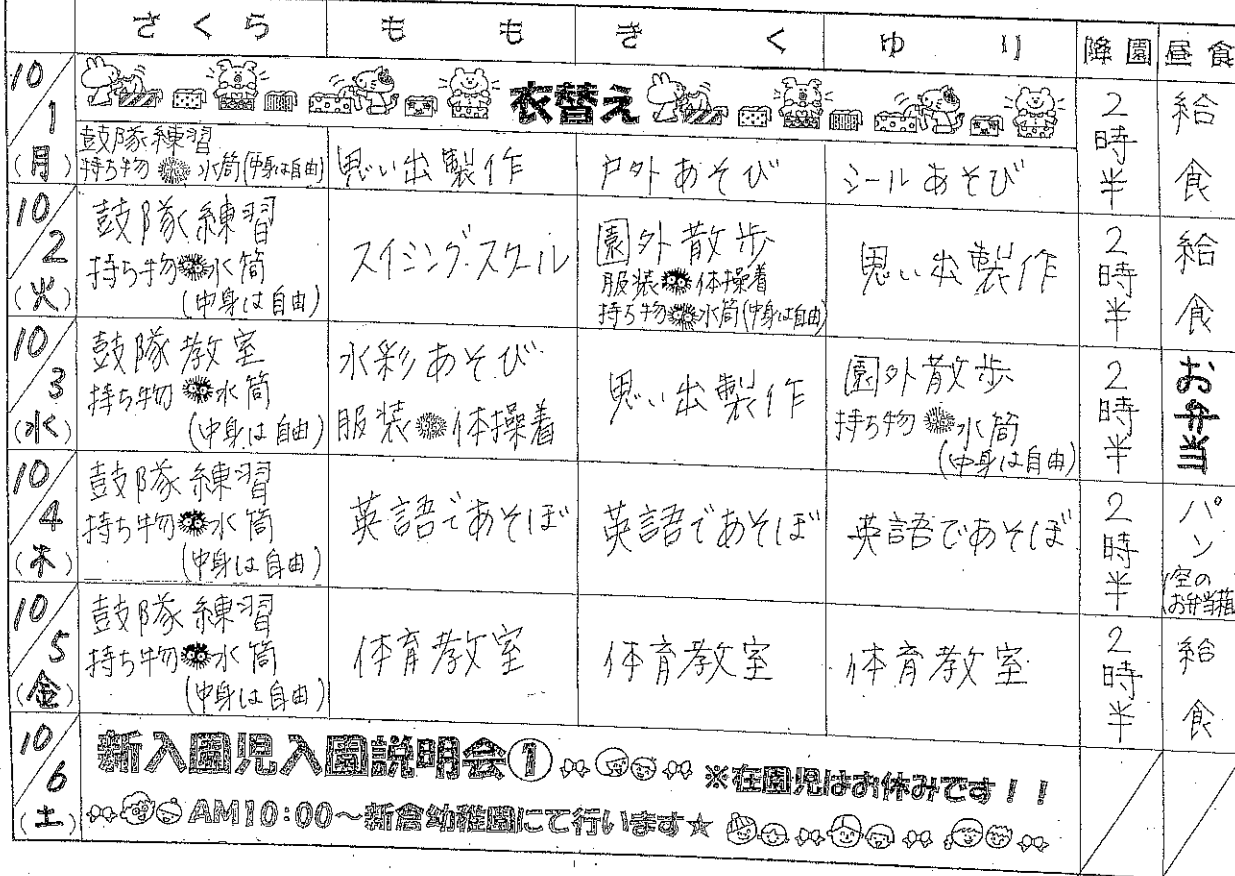 さくら もも きく ゆり 降園 昼食
10/1(月) 衣替え 2時半 給食
鼓隊練習
持ち物 水筒(中身は自由)
思い出製作
戸外あそび
シールあそび
10/2(火)
鼓隊練習
持ち物 水筒
(中身は自由)
スイミングスクール
園外散歩
服装 体操着
持ち物 水筒(中身は自由)
思い出製作
2時半
給食
10/3(水)
鼓隊教室
持ち物 水筒
(中身は自由)
水彩あそび
服装 体操着
思い出製作
園外散歩
持ち物 水筒
(中身は自由)
2時半
お弁当
10/4(木)
鼓隊練習
持ち物 水筒
(中身は自由)
英語であそぼ
英語であそぼ
英語であそぼ
2時半
パン
(空の
お弁当箱)
10/5(金)
鼓隊練習
持ち物 水筒
(中身は自由)
体育教室
体育教室
体育教室
2時半
給食
10/6(土)
新入園児入園説明会① ※在園児はお休みです!!
AM10:00~新倉幼稚園にて行います☆